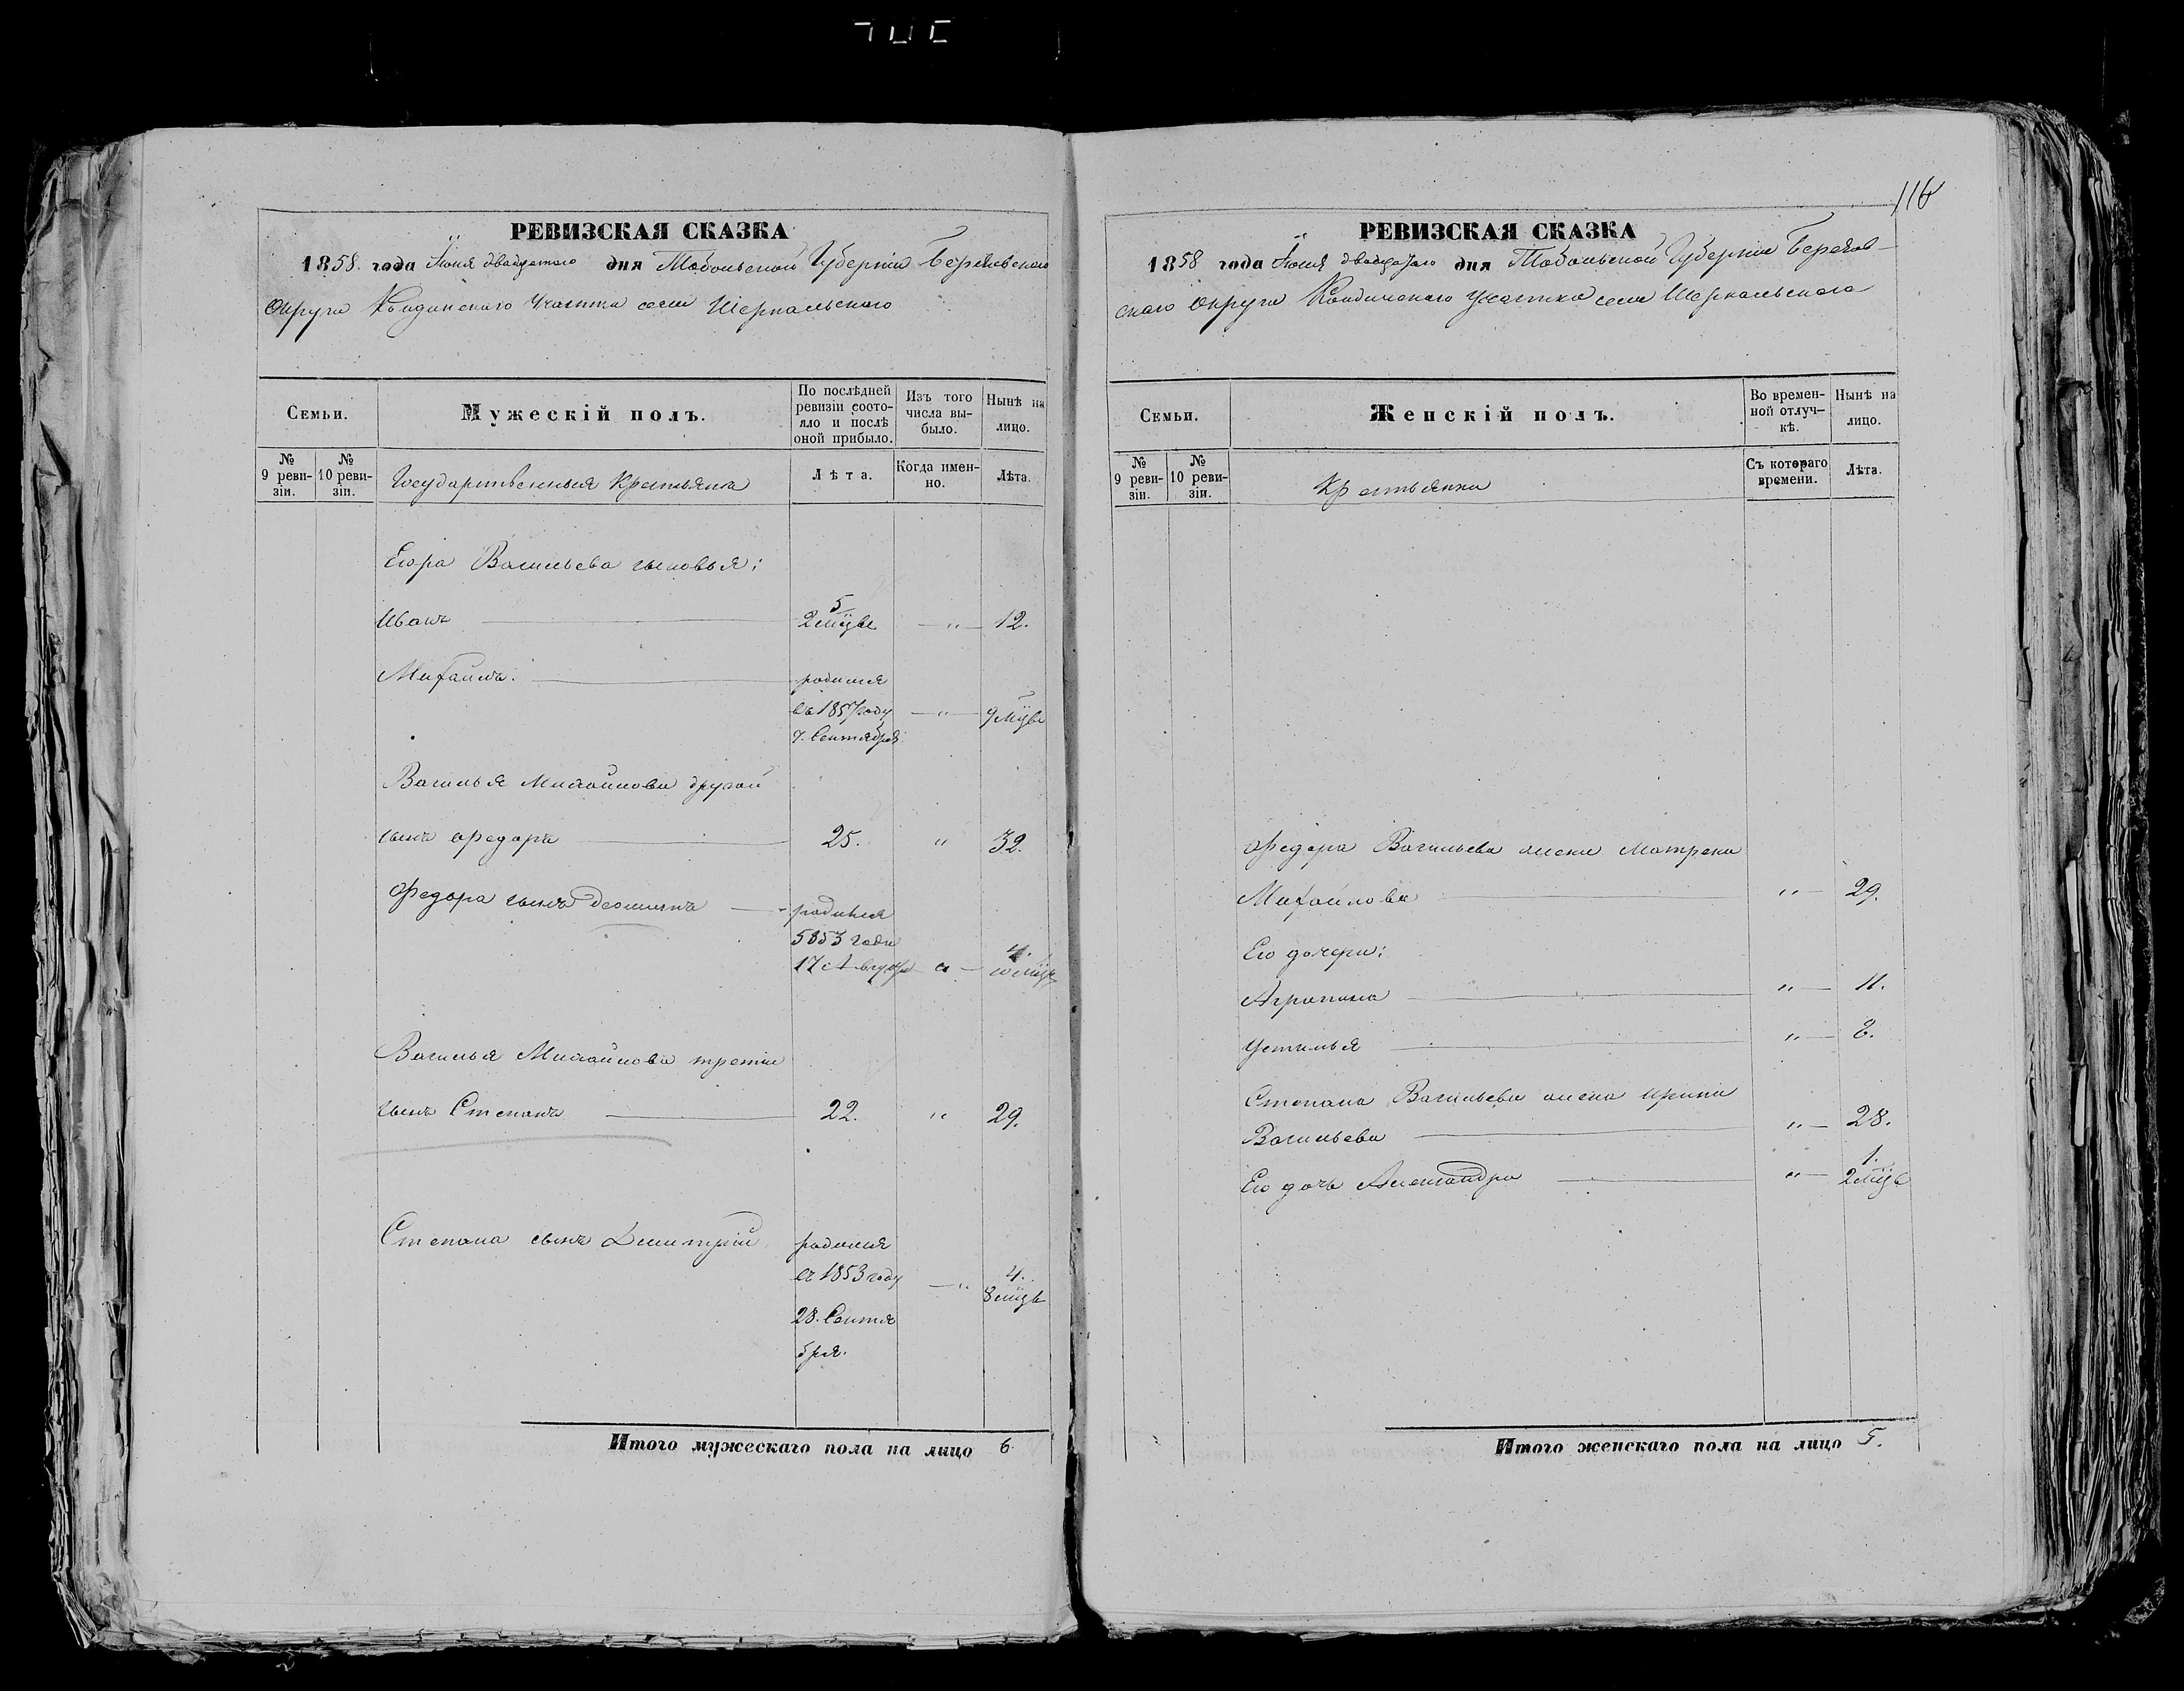 116
РЕВИЗСКАЯ СКАЗКА
1858 года Іюня двадцатаго дня Тобольской Губерніи Березовскаго
Округа Кондинскаго Участка села Шеркальскаго
Семьи.
Мужескій полъ.
По послѣдней ревизіи состояло и послѣ оной прибыло.
Изъ того числа выбыло.
Нынѣ на лицо.
№ 9 ревизіи.
№ 10 ревизіи.
Государственныя Крестьяна
Лѣта.
Когда именно.
Лѣта.
Егора Васильева сыновья:
Иванъ 5 2 мѣце „ 12.
Михаилъ. родился
въ 1857 году „ 9 мѣце
7. Сентября
Василья Михайлова другой
сынъ Федоръ 25. „ 32.
Федора сынъ родился
5853 года 4.
17 Августа „ 10 мѣце
Василья Михайлова третій
сынъ Степанъ 22. „ 29.
Степана сынъ Димитрій родился
въ 1853 году „ 4. 8 мѣце
28. Сентя
бря.
Итого мужескаго пола на лицо 6.
РЕВИЗСКАЯ СКАЗКА
1858 года Іюня двадцатаго дня Тобольской Губерніи Березов-
скаго Округа Кондинскаго Участка села Шеркальскаго
Семьи.
Женскій полъ.
Во временной отлучкѣ.
Нынѣ на лицо.
№ 9 ревизіи.
№ 10 ревизіи.
Крестьянки
Съ котораго времени.
Лѣта.
Федора Васильева жена Матрена
Михайлова „ 29.
Его дочери:
Агрипина „ 11.
Устинья „ 8.
Степана Васильева жена Ирина
Васильева „ 28.
Его дочь Александра „ 1. 2 мѣце
Итого женскаго пола на лицо 5.